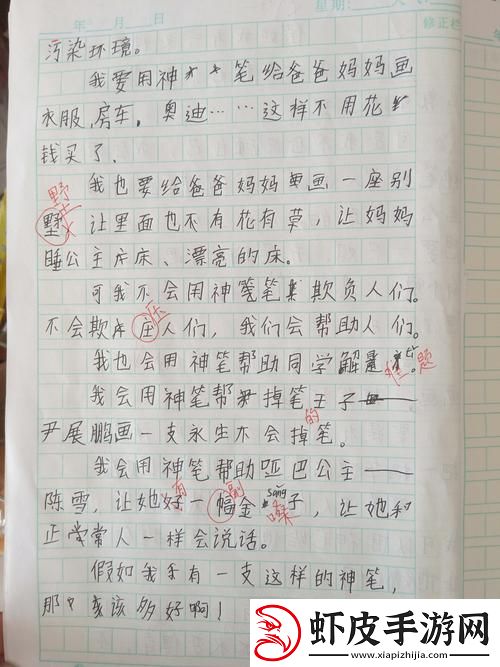 年 月 日
星期:
修正栏
污染环境。
我要用神 笔给爸爸妈妈画
衣服、房车、奥迪……这样不用花
钱买了、
野
我也要给爸爸妈妈画一座别
墅 让里面也不有花有草，让妈妈
睡公主床、漂亮的床。
可我不会用神笔 欺负人们。
压
不会欺 庄人们，我们会帮助人们。
我也会用神笔帮助同学解 难题
我会用神笔帮 掉笔王子——
的
尹展鹏画一支永生不会掉笔。
我会用神笔帮助哑巴公主——
有 副
陈雪，让她好一幅金 sǎng 子，让她和
嗓
正常人一样会说话。
假如我有一支这样的神笔，
那 该多好啊！
虾皮手游网
www.xiapizhijia.com